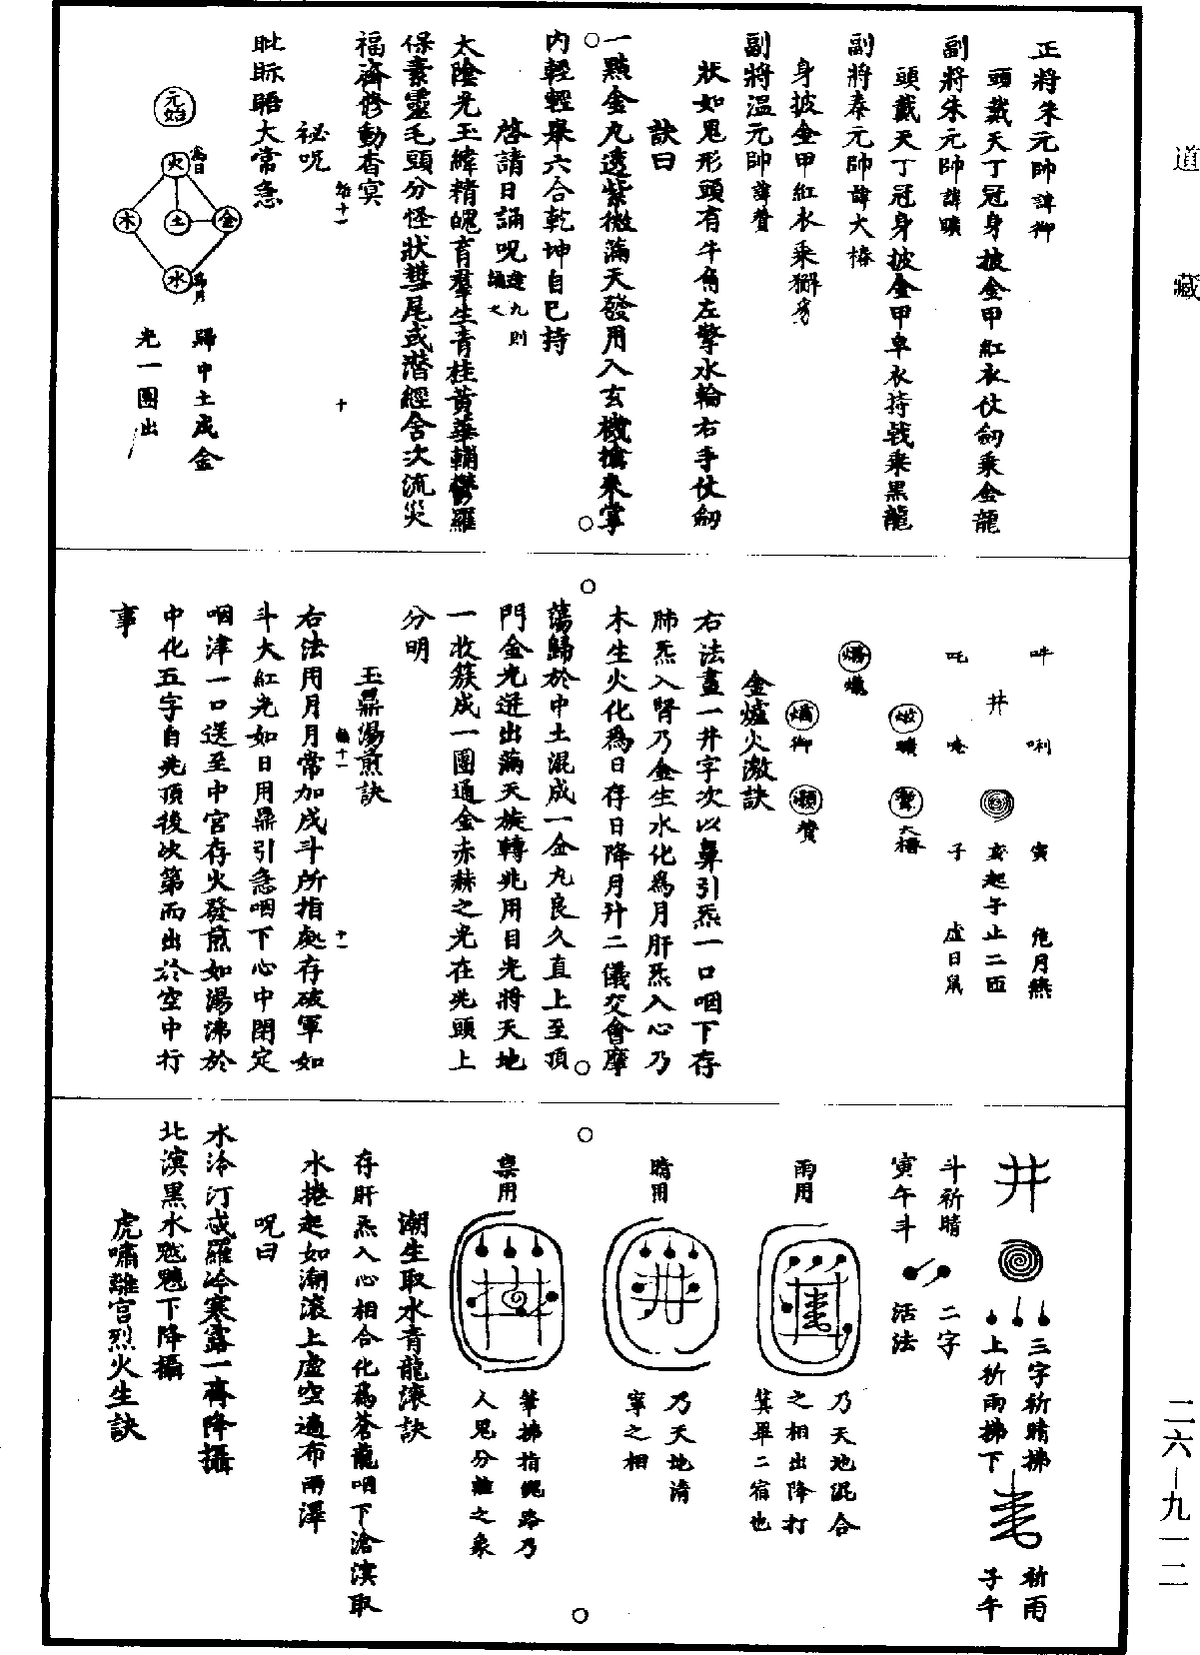 道藏
二六—九一二
正將朱元帥諱御
頭戴天丁冠身披金甲紅衣仗劒乘金龍
副將朱元帥諱曠
頭戴天丁冠身披金甲皁衣持戟乘黑龍
副將秦元帥諱大椿
身披金甲紅衣乘獬豸
副將溫元帥諱贊
狀如鬼形頭有牛角左擎水輪右手仗劒
訣曰
一點金丸透紫微滿天發用入玄機擒來掌
内輕輕舉六合乾坤自已持
啓請日誦呪
太陰光玉緯精魄育羣生青桂黃華輔鬱羅
保素靈毛頭分怪狀彗尾或潛經舍次流災
福齋修動杳冥
祕呪
大常急
元始
火
為日
木
土
金
水
為月
歸中土成金
光一團出
吽 唎 寅 危月燕
井 起子止二匝
吒 唵 子 虚日鼠
曠
大椿
御
贊
金爐火激訣
右法畫一井字次以鼻引炁一口咽下存
肺炁入腎乃金生水化爲月肝炁入心乃
木生火化爲日存日降月升二儀交會摩
蕩歸於中土混成一金丸良久直上至頂
門金光迸出滿天旋轉兆用目光將天地
一收簇成一團通金赤赫之光在兆頭上
分明
玉鼎湯煎訣
右法用月月常加戌斗所指處存破軍如
斗大紅光如日用鼎引急咽下心中閉定
咽津一口送至中宮存火發煎如湯沸於
中化五字自兆頂後次第而出於空中行
事
井
三字祈晴拂
上祈雨拂下
祈雨
子午
斗祈晴 二字
寅午斗 活法
雨用
乃天地混合
之相出降打
箕畢二宿也
晴用
乃天地清
寧之相
禜用
筆拂指鬼路乃
人鬼分離之象
潮生取水青龍滚訣
存肝炁入心相合化爲蒼龍咽下滄溟取
水捲起如潮滚上虚空遍布雨澤
呪曰
水泠汀忒羅冷寒露一齊降攝
北溟黑水下降攝
虎嘯離宮烈火生訣